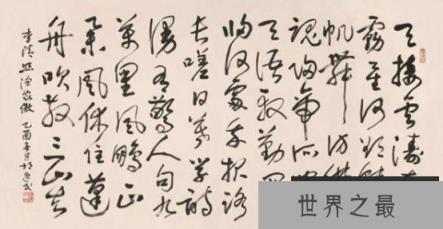 天接雲濤
霧星河欲轉
帆舞仿佛
魂歸帝所
天語殷勤
歸何處我報路
長嗟日暮學詩
謾有驚人句九
萬里風鵬正
舉風休住蓬
舟吹取三山去
李清照漁家傲 乙酉年
世界之最